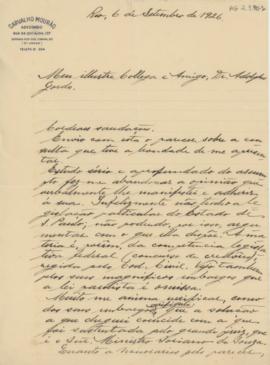 CARVALHO MOURÃO
ADVOGADO
RUA DA QUITANDA, 107
Rio, 6 de Setembro de 1926.
Meu illustre Collega e Amigo, Dr. Adolpho
Gordo.
Cordiaes saudações.
Envio com esta o parecer sobre a con
sulta que teve a bondade de me apre
sentar.
Estudo sério e aprofundado do assum
pto fez-me abandonar a opinião que
verbalmente lhe manifestei e adherir
á sua. Infelizmente não pude a le
gislação particular do Estado de
S. Paulo; não podendo, por isso, argu
mentar com o que ella dispõe. A ma
teria é, porém, da competencia legisla
tiva federal (concurso de credores),
regida pelo Cod. Civil. Vejo tambem
pelos seus magnificos embargos que
a lei paulista é omissa.
Muito me anima verificar, como
dos seus embargos, que a solução
a que cheguei coincide com a que
foi sustentada pelo grande juiz que
é o Snr. Ministro Soriano de Souza.
Quanto a honorarios pelo parecer,